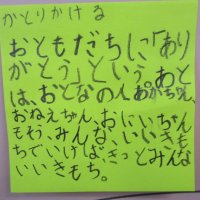 かとりかける
おともだちに「あり
がとう」という。あと
は、おとなの人。あかちゃん、
おねえちゃん、おにいちゃん
もわ、みんな、いいきも
ちでいけば、きっとみんな
いいきもち。